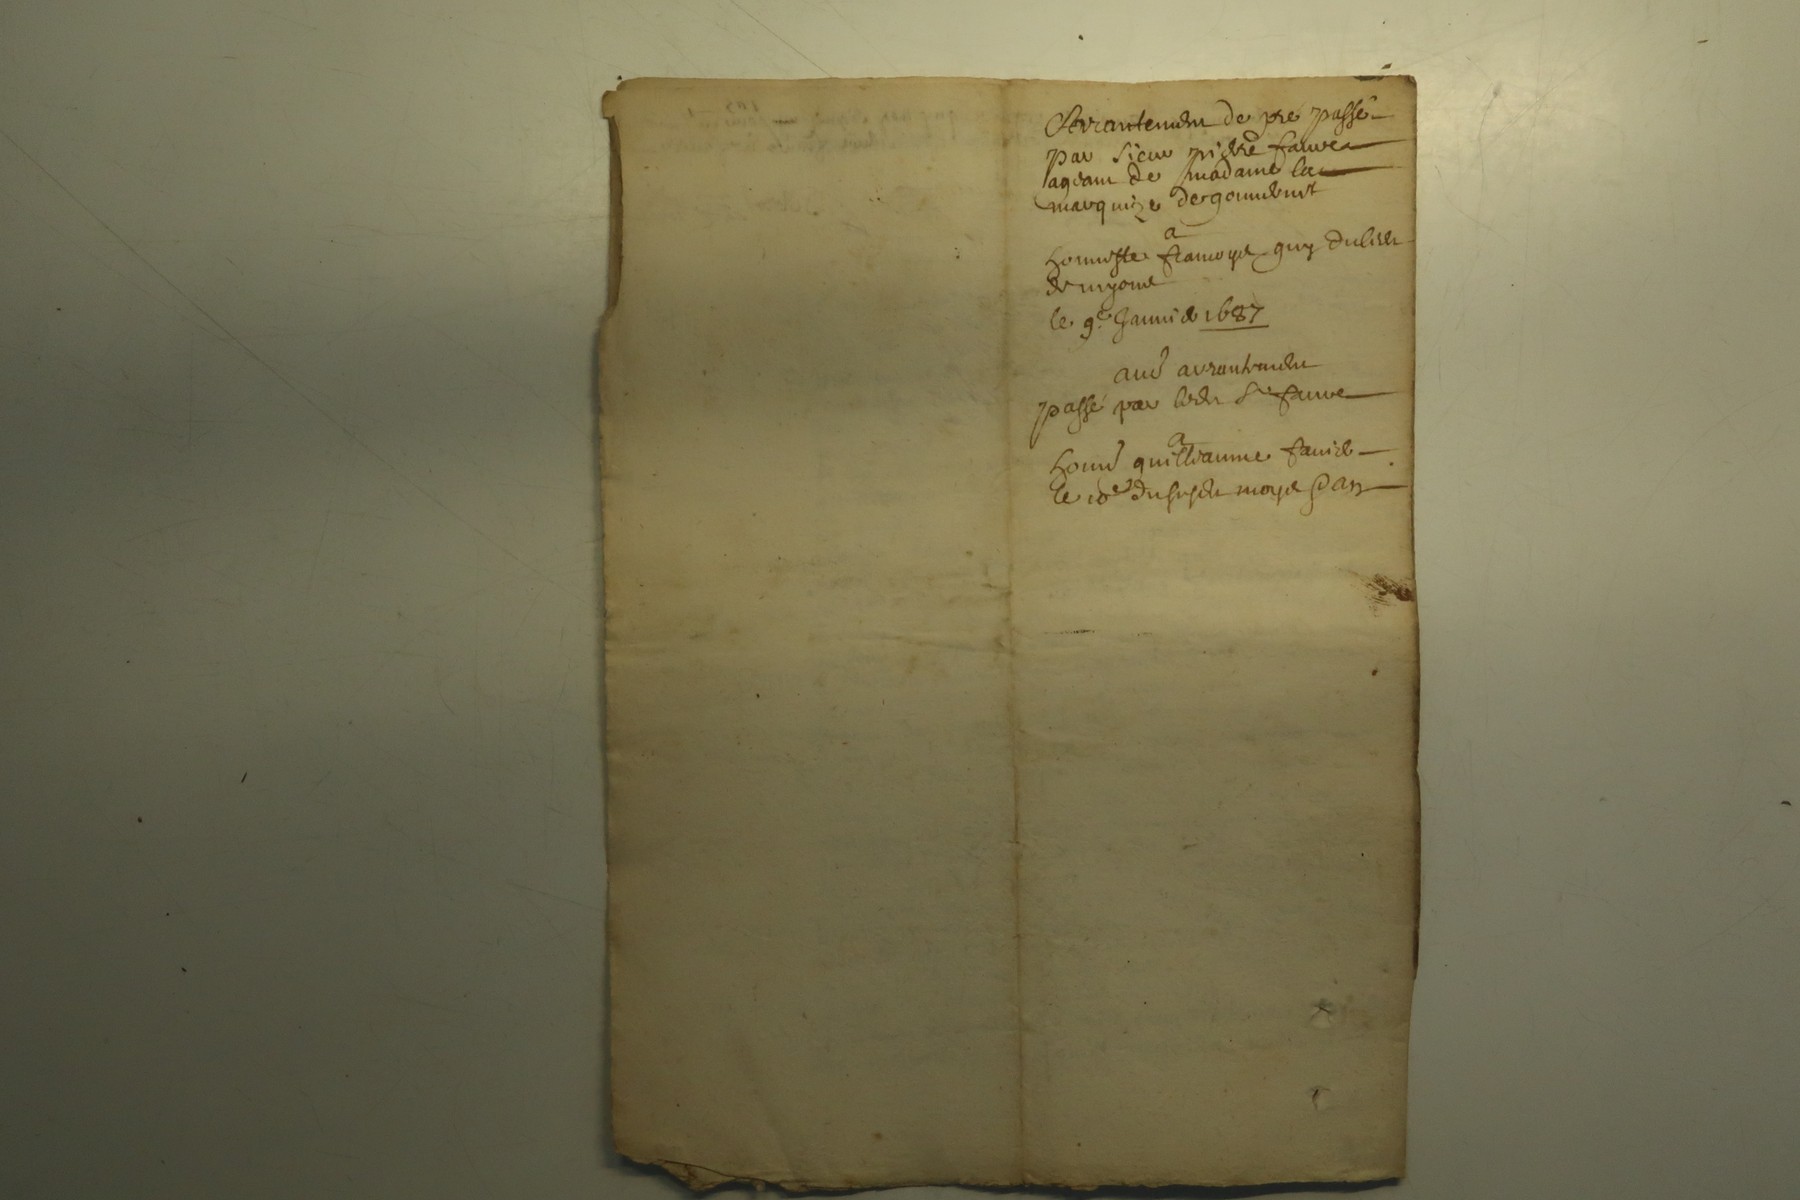 Arrantement de pré passé
par sieur pierre faure
ageant de madame la
marquize de gouuernet
a
honneste françoys guy du lieu
de nyons
le 9e Januier 1687
auec arrantement
passé par ledit Sr faure
a
honn guilliaume fauier
le 10e du susdit moys & an